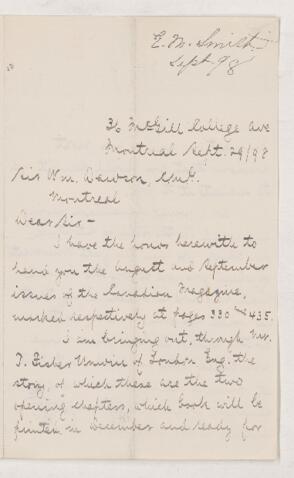 E. M. Smith
Sept 98
36 McGill College Ave
Montreal Sept. 29/98
Sir Wm. Dawson, C.M.G.
Montreal
Dear Sir-
I have the honor herewith to
hand you the August and September
issues of the Canadian Magazine,
marked respectively at pages 330 & 435.
I am bringing out, through Mr.
T. Fisher Unwin of London Eng. the
story, of which these are the two
opening chapters, which book will be
printed in December and ready for